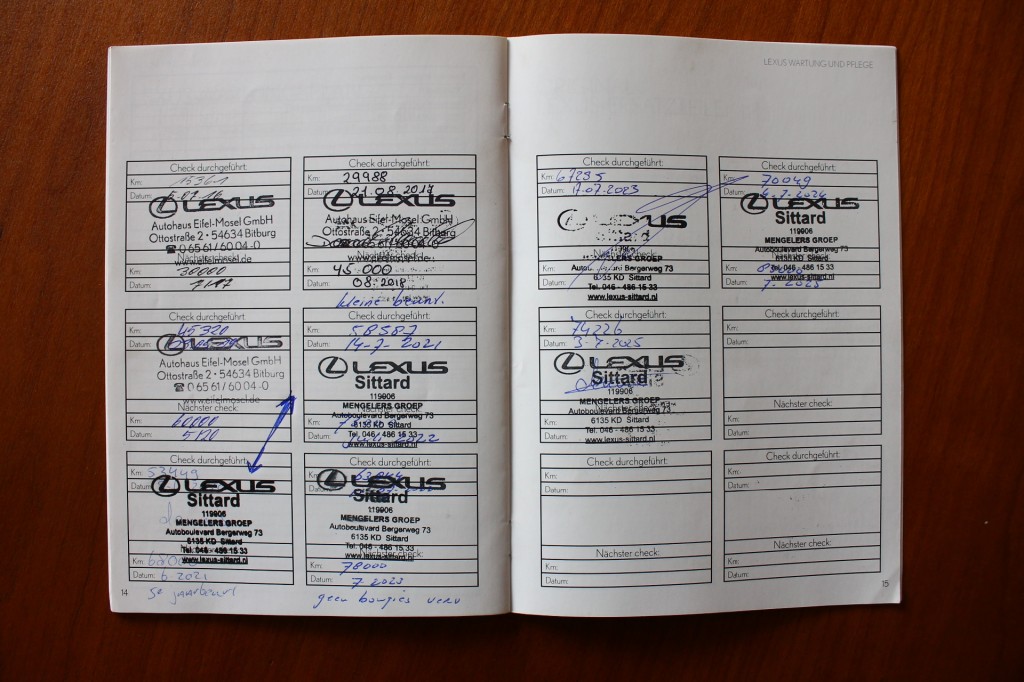 LEXUS WARTUNG UND PFLEGE
Check durchgeführt:
Km: 15361
Datum:
LEXUS
Autohaus Eifel-Mosel GmbH
Ottostraße 2 • 54634 Bitburg
☎ 0 65 61/60 04-0
www.eifelmosel.de
30000
Check durchgeführt:
Km: 29988
Datum: 21.08.2017
LEXUS
Autohaus Eifel-Mosel GmbH
Ottostraße 2 • 54634 Bitburg
Km: 45.000
Datum: 08.2018
kleine
Check durchgeführt:
Km: 45320
Datum:
LEXUS
Autohaus Eifel-Mosel GmbH
Ottostraße 2 • 54634 Bitburg
☎ 0 65 61/60 04-0
www.eifelmosel.de
Nächster check:
Km: 60000
Datum: 5/20
Check durchgeführt:
Km: 58587
Datum: 14-7 2021
LEXUS
Sittard
119906
MENGELERS GROEP
Autoboulevard Bergerweg 73
6135 KD Sittard
Tel. 046 - 486 15 33
www.lexus-sittard.nl
Juli 2022
Check durchgeführt:
Km: 52449
Datum:
LEXUS
Sittard
119906
MENGELERS GROEP
Autoboulevard Bergerweg 73
6135 KD Sittard
Tel. 046 - 486 15 33
www.lexus-sittard.nl
Km:
Datum: 6.2021
Check durchgeführt:
Km:
Datum:
LEXUS
Sittard
119906
MENGELERS GROEP
Autoboulevard Bergerweg 73
6135 KD Sittard
Tel. 046 - 486 15 33
www.lexus-sittard.nl
Km: 78000
Datum: 7.2023
geen bougies verv
14
Check durchgeführt:
Km: 67295
Datum: 17.07.2023
LEXUS
Sittard
119906
MENGELERS GROEP
Autoboulevard Bergerweg 73
6135 KD Sittard
Tel. 046 - 486 15 33
www.lexus-sittard.nl
Check durchgeführt:
Km: 70049
Datum: 4.7.2024
LEXUS
Sittard
119906
MENGELERS GROEP
Autoboulevard Bergerweg 73
6135 KD Sittard
Tel. 046 - 486 15 33
www.lexus-sittard.nl
Check durchgeführt:
Km: 74226
Datum: 3-7-2025
LEXUS
Sittard
119906
MENGELERS GROEP
Autoboulevard Bergerweg 73
6135 KD Sittard
Tel. 046 - 486 15 33
www.lexus-sittard.nl
Check durchgeführt:
Km:
Datum:
Nächster check:
Km:
Datum:
Check durchgeführt:
Km:
Datum:
Nächster check:
Km:
Datum:
Check durchgeführt:
Km:
Datum:
Nächster check:
Km:
Datum:
15